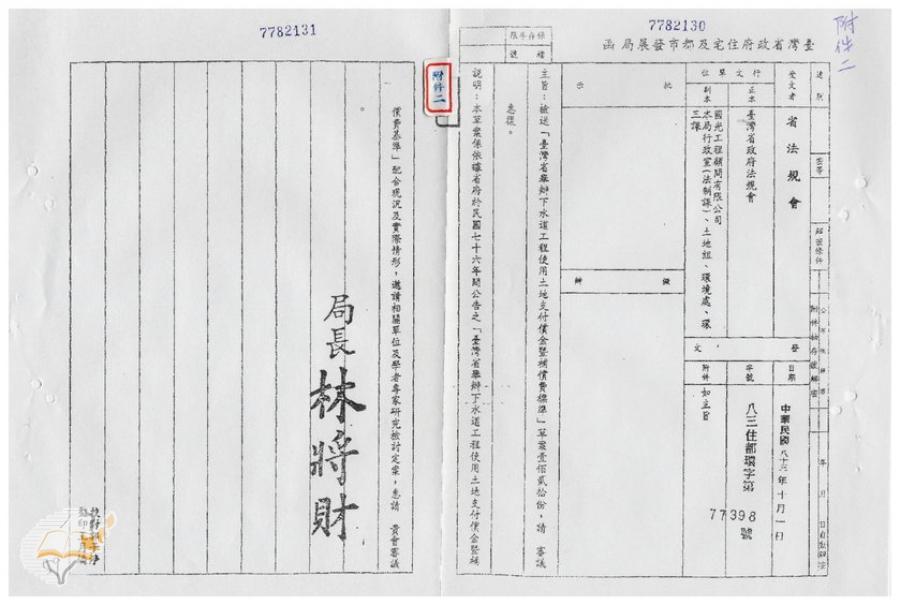 附件二
7782130
7782131
臺灣省政府住宅及都市發展局函
保存年限
檔號
速別
密等
解密條件
受文者
省法規會
行文單位
正本
臺灣省政府法規會
副本
國光工程顧問有限公司
本局行政室(法制課)、土地組、環境處、環
三課
發文
日期
中華民國八十三年十月一日
字號
八三住都環字第
77398
號
附件
如主旨
批示
擬辦
主旨：檢送「臺灣省舉辦下水道工程使用土地支付償金暨補償費標準」草案壹佰貳拾份，請　審議
惠復。
說明：本草案係依據省府於民國七十六年間公告之「臺灣省舉辦下水道工程使用土地支付償金暨補
附件二
償費基準」配合現況及實際情形，邀請相關單位及學者專家研究檢討定案，惠請　貴會審議
局長 林將財